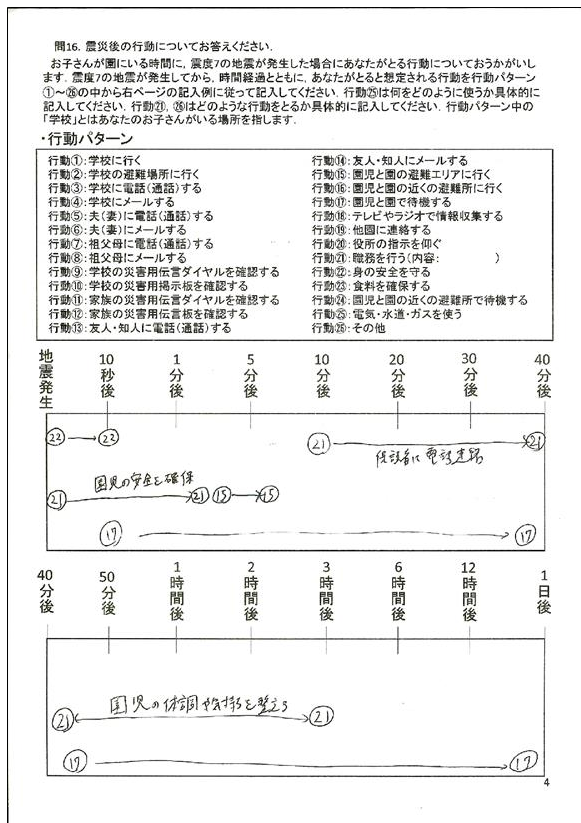 問16. 震災後の行動についてお答えください.
お子さんが園にいる時間に, 震度7の地震が発生した場合にあなたがとる行動についておうかがいし
ます. 震度7の地震が発生してから, 時間経過とともに, あなたがとると想定される行動を行動パターン
①～㉖の中から右ページの記入例に従って記入してください. 行動㉕は何をどのように使うか具体的に
記入してください. 行動㉑, ㉖はどのような行動をとるか具体的に記入してください. 行動パターン中の
「学校」とはあなたのお子さんがいる場所を指します.
・行動パターン
行動①:学校に行く
行動②:学校の避難場所に行く
行動③:学校に電話(通話)する
行動④:学校にメールする
行動⑤:夫(妻)に電話(通話)する
行動⑥:夫(妻)にメールする
行動⑦:祖父母に電話(通話)する
行動⑧:祖父母にメールする
行動⑨:学校の災害用伝言ダイヤルを確認する
行動⑩:学校の災害用掲示板を確認する
行動⑪:家族の災害用伝言ダイヤルを確認する
行動⑫:家族の災害用伝言板を確認する
行動⑬:友人・知人に電話(通話)する
行動⑭:友人・知人にメールする
行動⑮:園児と園の避難エリアに行く
行動⑯:園児と園の近くの避難所に行く
行動⑰:園児と園で待機する
行動⑱:テレビやラジオで情報収集する
行動⑲:他園に連絡する
行動⑳:役所の指示を仰ぐ
行動㉑:職務を行う(内容: )
行動㉒:身の安全を守る
行動㉓:食料を確保する
行動㉔:園児と園の近くの避難所で待機する
行動㉕:電気・水道・ガスを使う
行動㉖:その他
地震発生 10秒後 1分後 5分後 10分後 20分後 30分後 40分後
㉒ ㉒ ㉑ ㉑
保護者に電話連絡
園児の安全を確保
㉑ ㉑ ⑮ ⑮
⑰ ⑰
40分後 50分後 1時間後 2時間後 3時間後 6時間後 12時間後 1日後
園児の体調や気持を整える
㉑ ㉑
⑰ ⑰
4